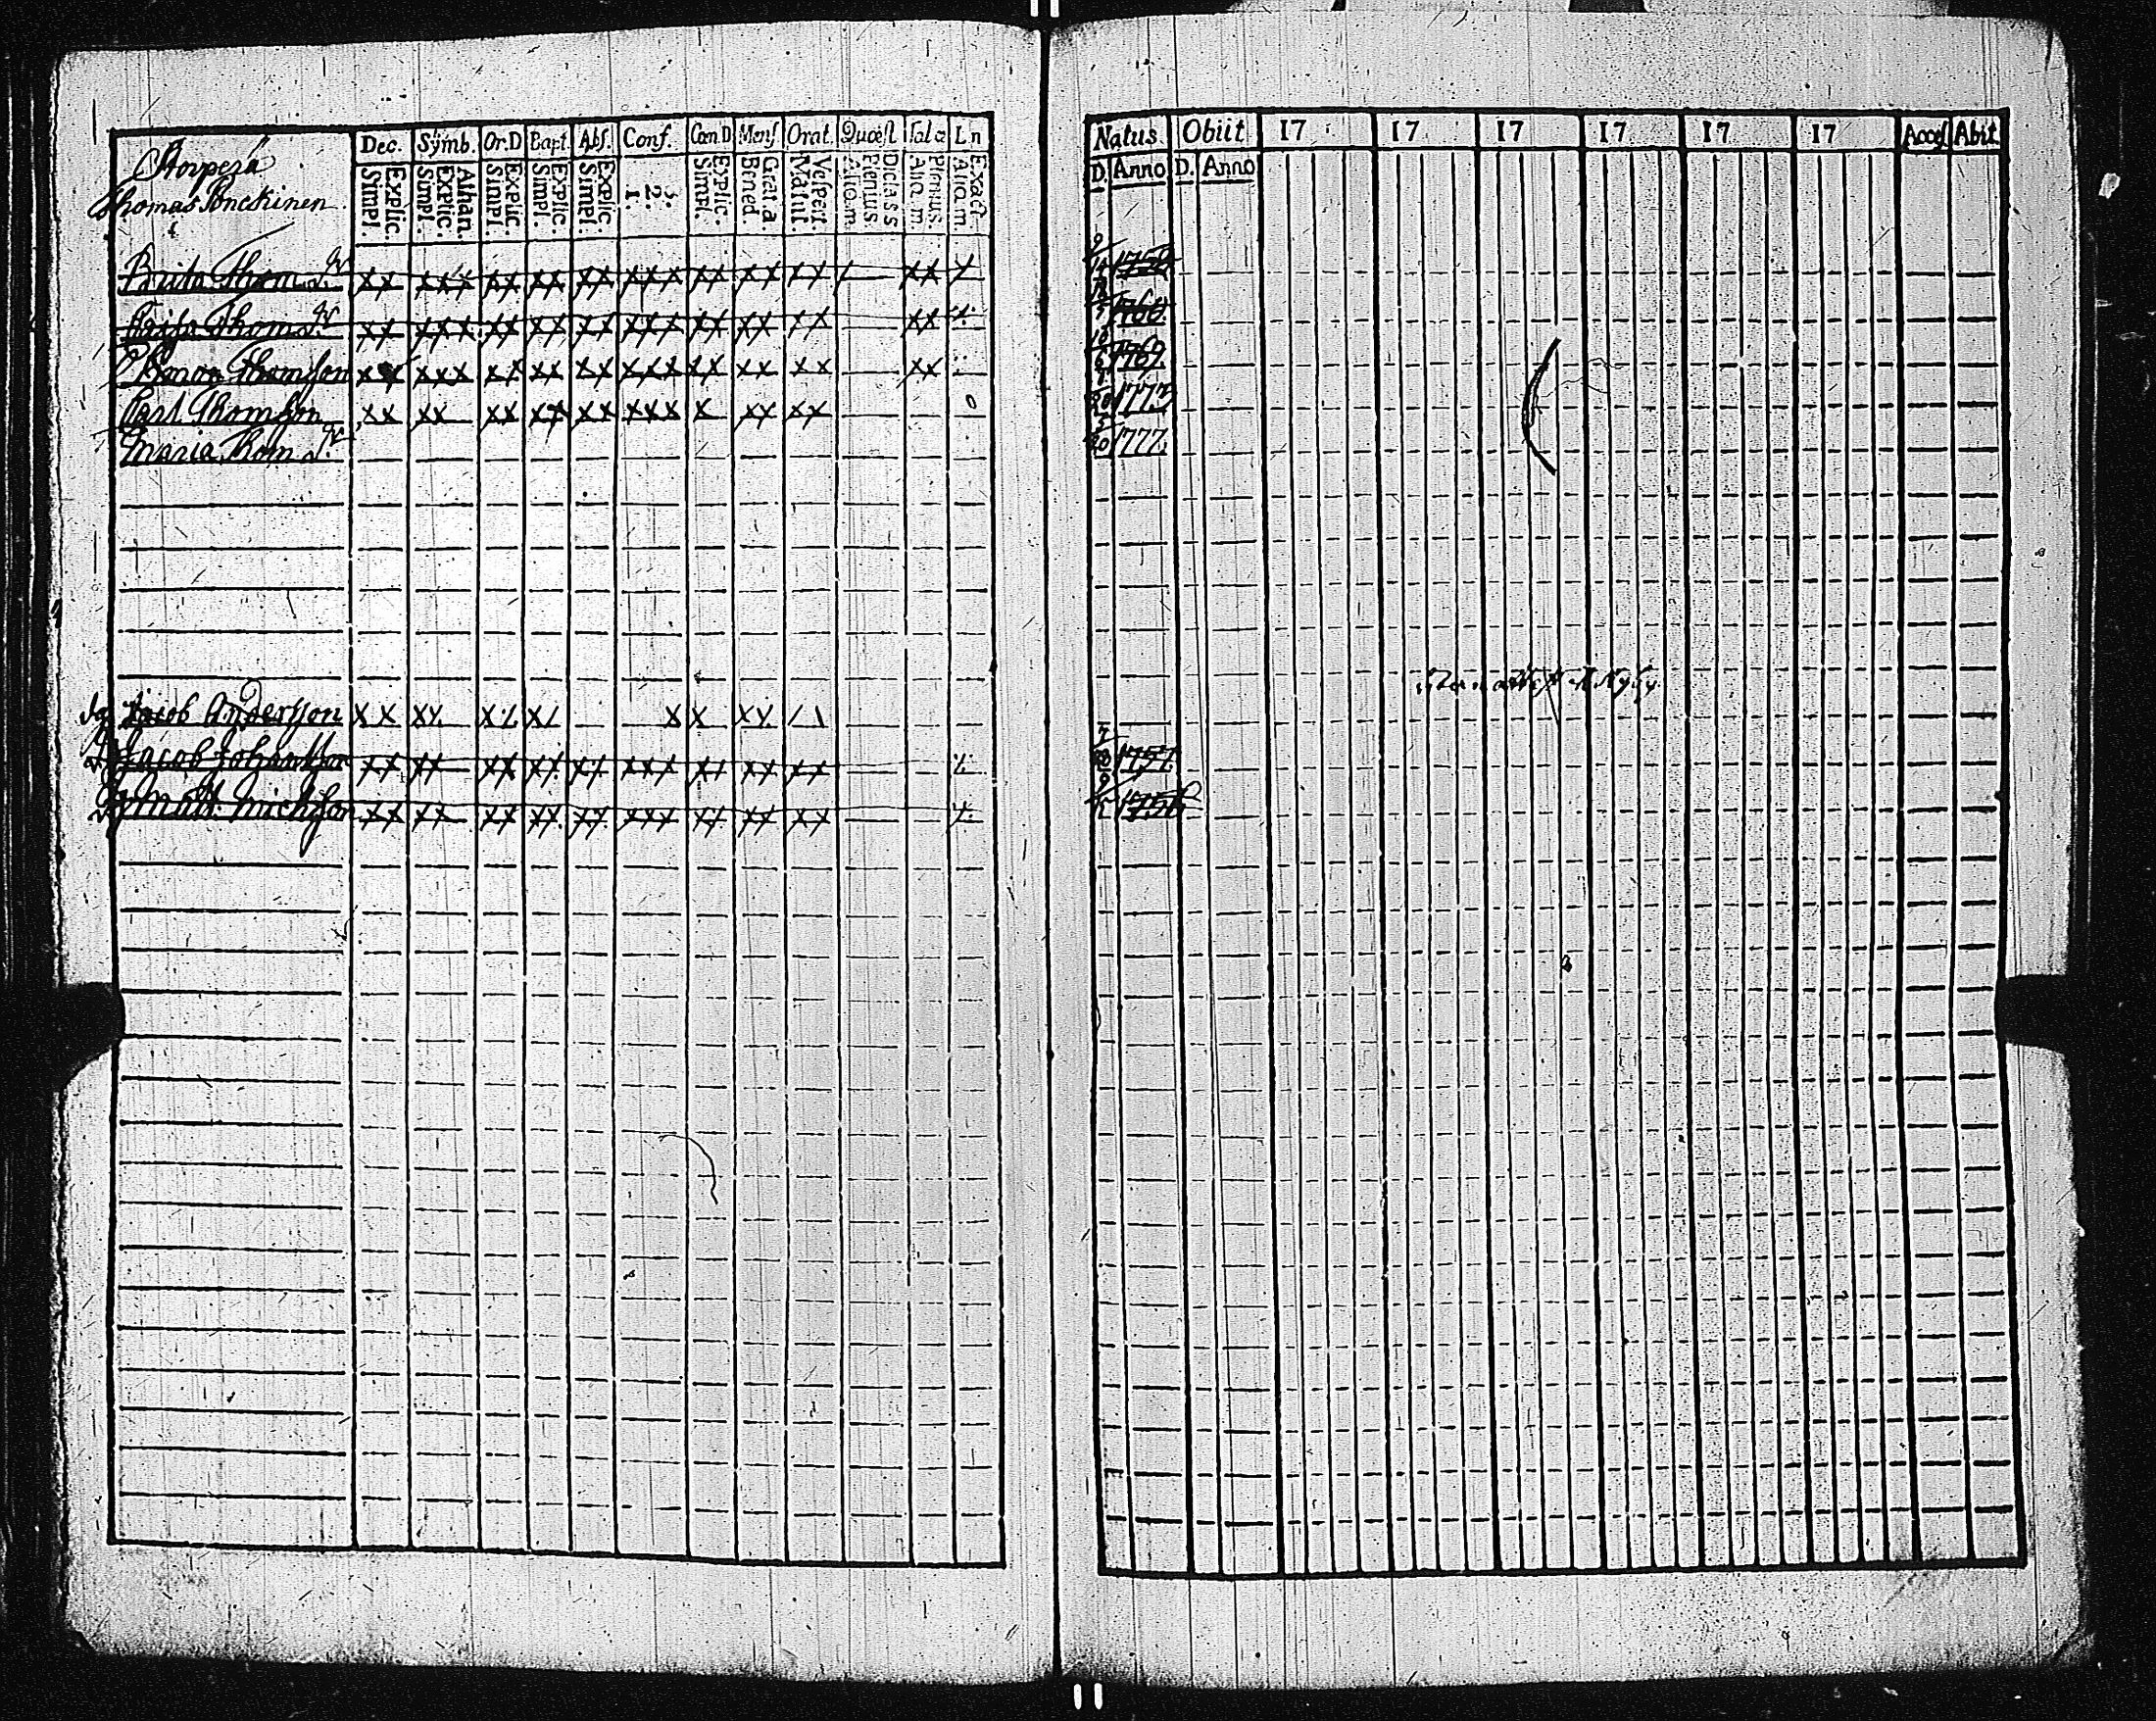 Dec. Symb. Or.D Bapt. Abs. Conf. Cœn.D Mens Orat. Quœst Tab.œ Ln
Explic. Simpl. Athan. Explic. Simpl. Explic. Simpl. Explic. Simpl. Explic. Simpl. 3. 2. 1. Explic. Simpl. Grat.a. Bened. Vespert. Matut. D.class Plenius Aliq.m. Plenius. Aliq.m. Exact. Aliq.m.
Thomas Ponckinen.
Brita Thom.d:r xx xxx xx xx xx xxx xx xx xx xx
Thom.d:r xx xxx xx xx xx xxx xx xx xx xx
Thomsson xx xxx xx xx xx xxx xx xx xx xx
Carl Thomsson xx xx xx xx xx xxx x xx xx o
Maria Thom.d:r
Jacob Andersson xx xx xx x/ x x xx /\
Jacob Johansson xx xx xx xx xx xxx xx xx xx
Matt. Michelsson xx xx xx xx xx xxx xx xx xx
Natus. Obiit 17 17 17 17 17 17 Acces Abit
D. Anno D. Anno
1760
1769.
20 1773
20 1777.
1757.